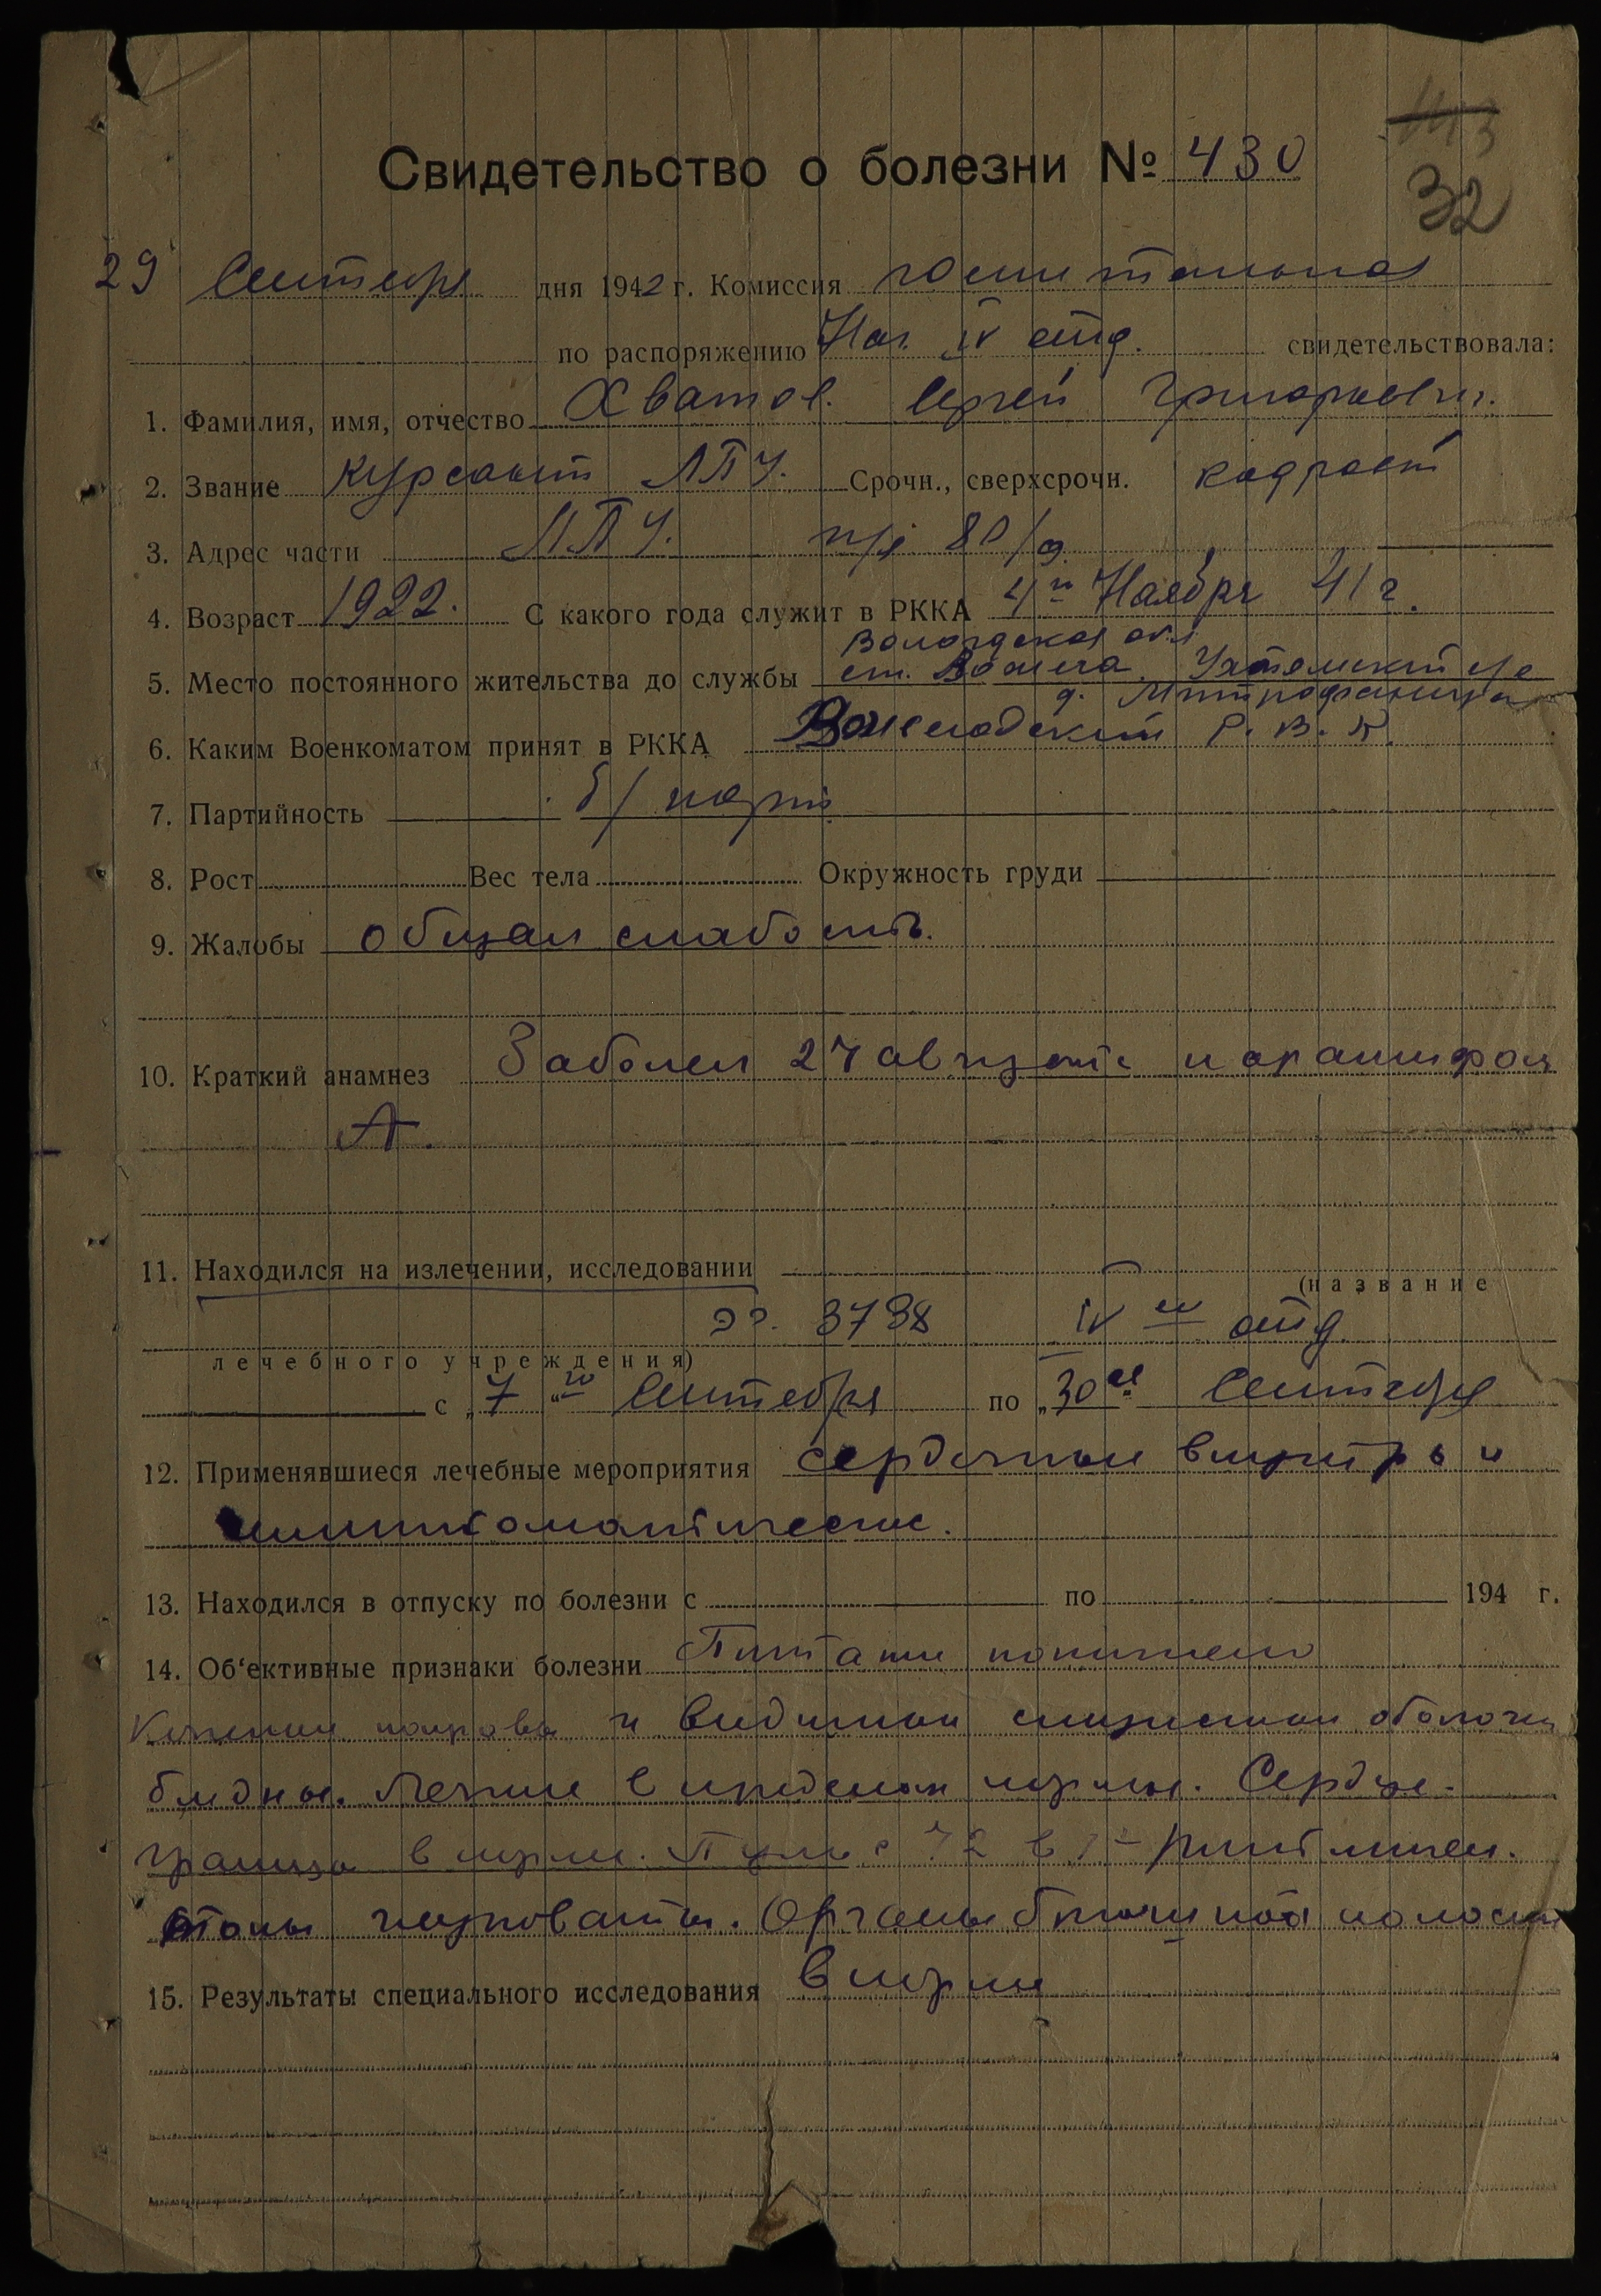 143
32
Свидетельство о болезни № 430
29 Сентября дня 1942 г. Комиссия госпитальная
по распоряжению Нач. IV отд. свидетельствовала:
1. Фамилия, имя, отчество Хватов. Сергей Григорьевич.
2. Звание курсант ЛПУ. Срочн., сверхсрочн.
3. Адрес части ЛПУ. п/я 80/
4. Возраст 1922. С какого года служит в РККА 4го Ноября 41 г.
Вологодская обл
5. Место постоянного жительства до службы ст. Вожега Ухтомский с/с
д. Митрофаниха
6. Каким Военкоматом принят в РККА Вожегодский Р. В. К.
7. Партийность б/парт.
8. Рост Вес тела Окружность груди
9. Жалобы общая слабость.
10. Краткий анамнез Заболел 27 августа паратифом
А.
11. Находился на излечении, исследовании
(название
эг. 3738 IV ое отд.
лечебного учреждения)
с „7го“ Сентября по „30ое Сентября
12. Применявшиеся лечебные мероприятия сердечные внутрь и
симптоматические.
13. Находился в отпуску по болезни с по 194 г.
14. Об'ективные признаки болезни Питание понижено
Кожные покровы и видимые слизистые оболочки
бледны. Легкие в пределах нормы. Сердце-
границы в норме. Пульс 72 в 1' ритмичен.
тоны глуховаты. Органы брюшной полости
15. Результаты специального исследования в норме